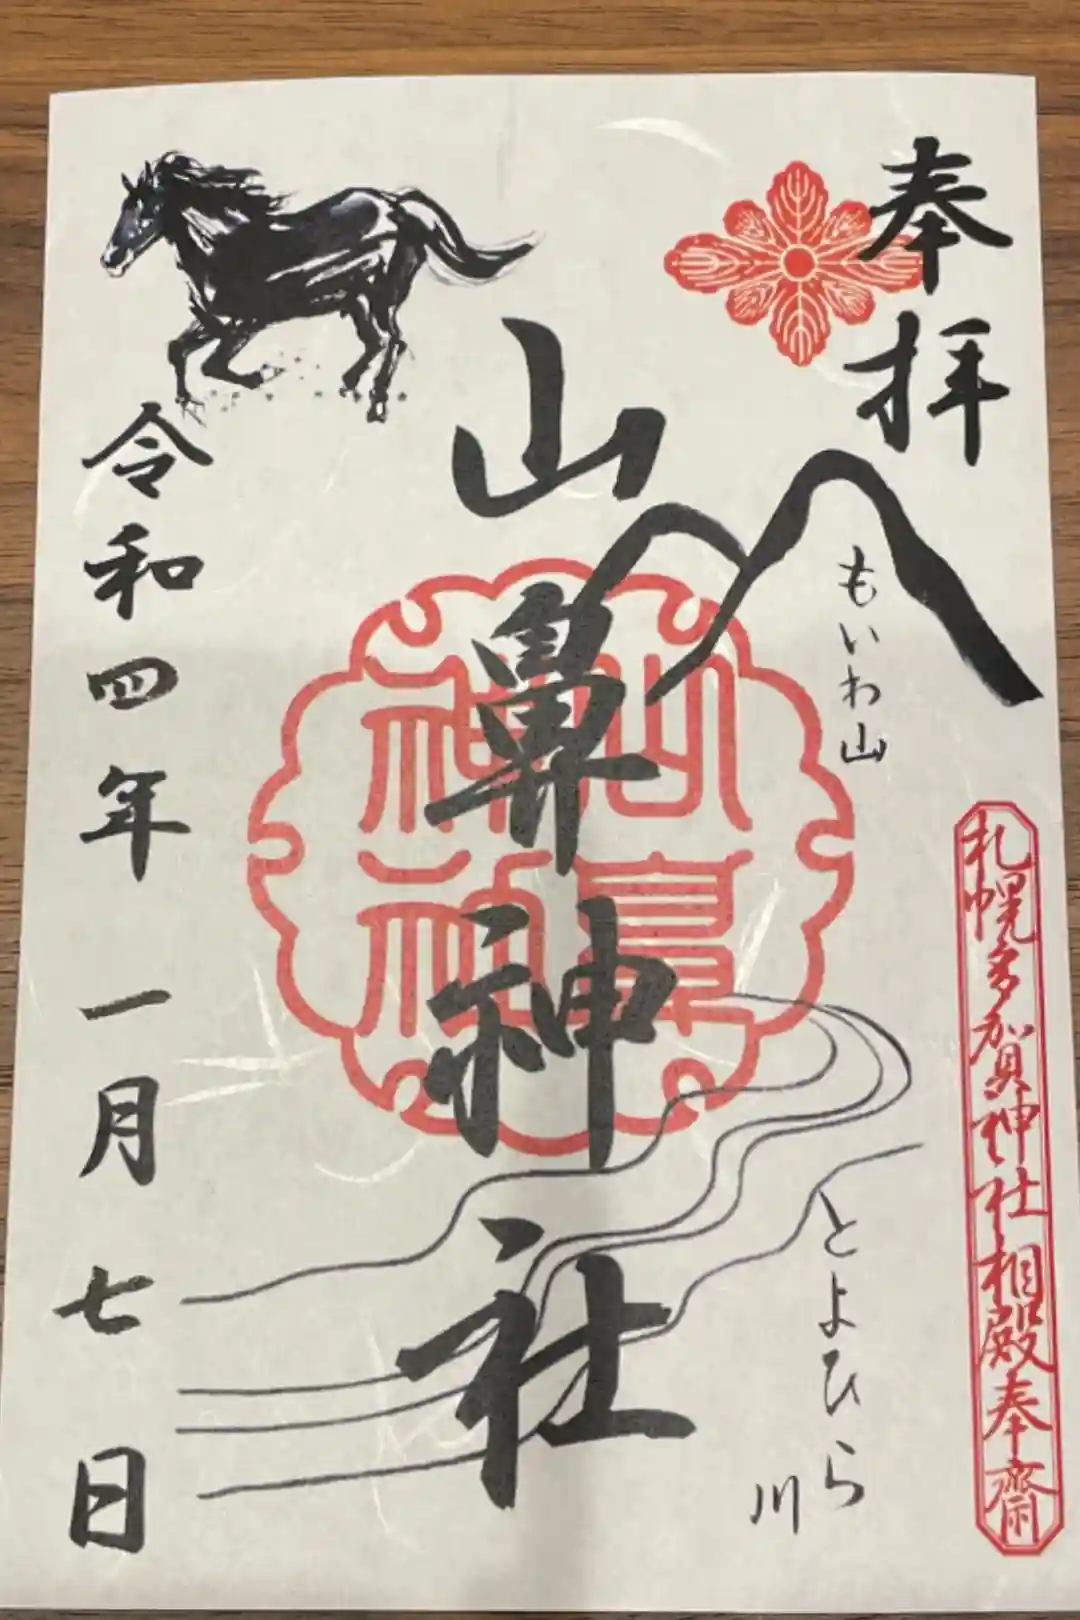 奉拝
もいわ山
札幌多賀神社相殿奉齋
とよひら
川
山鼻神社
山鼻
神社
令和四年一月七日